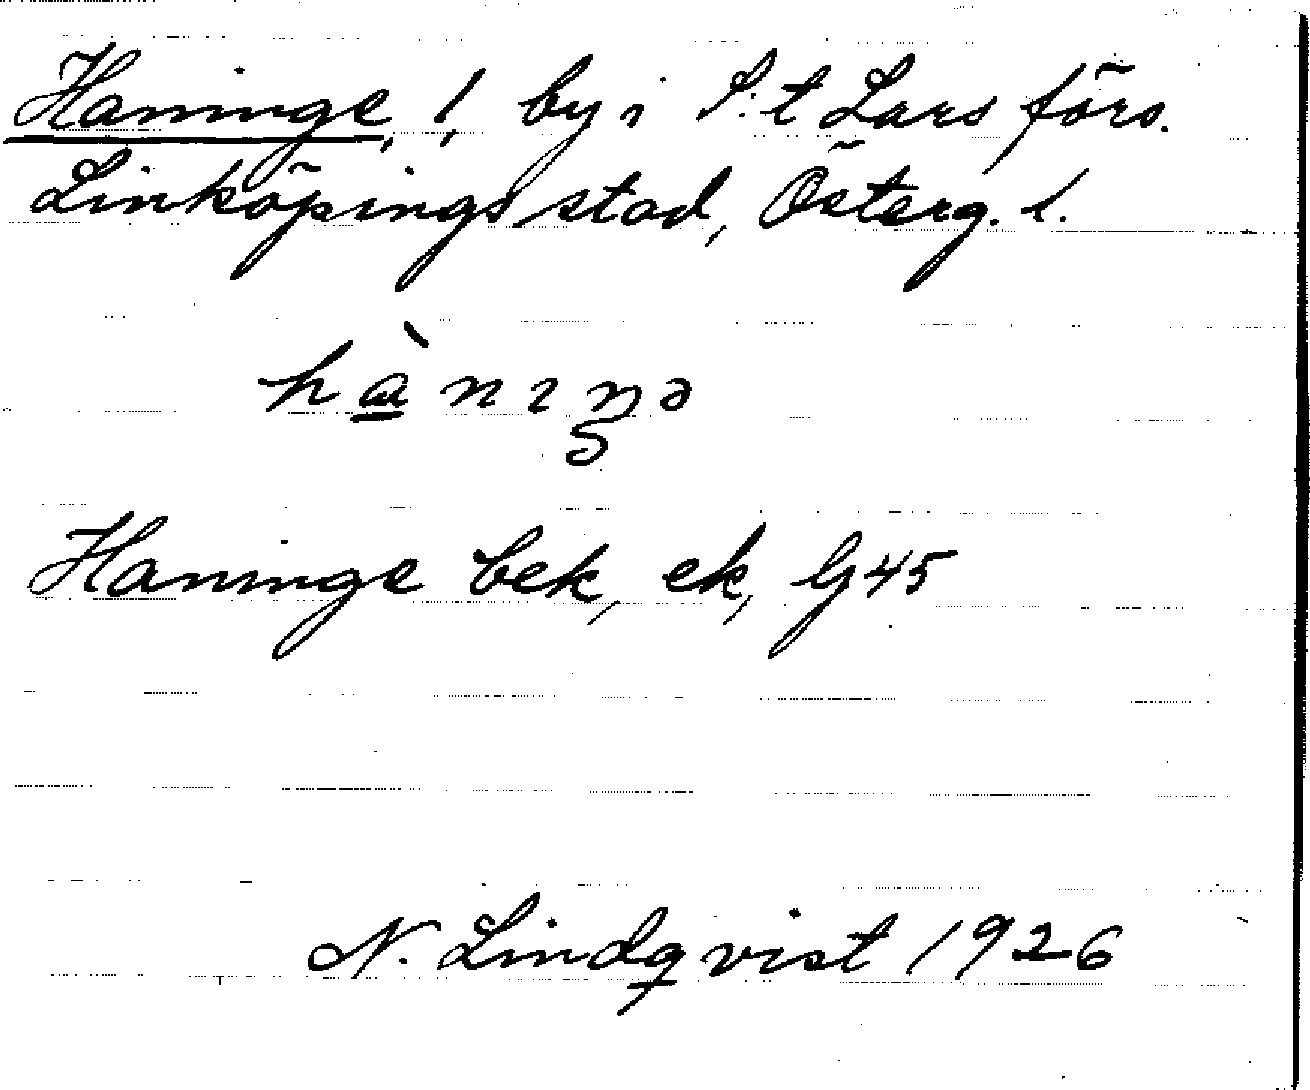 Haninge, !, by i S:t Lars förs.
Linköpings stad, Österg. l.
hànıŋə
Haninge bek, ek, Gj 45
N. Lindqvist 1926